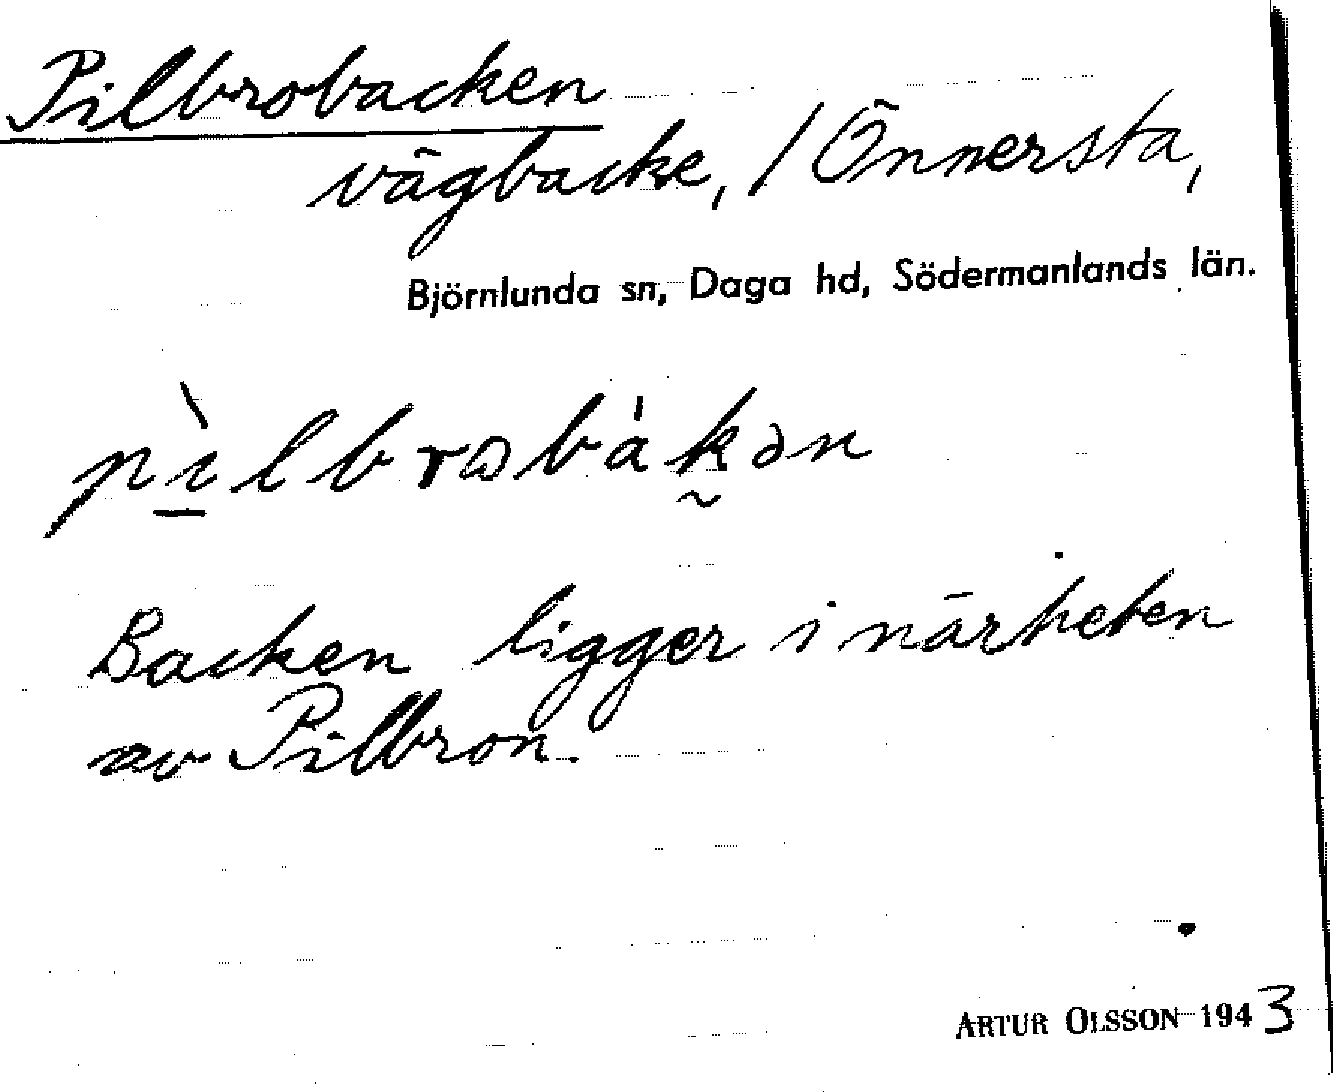 Pilbrobacken
vägbacke, / Önnersta,
Björnlunda sn, Daga hd, Södermanlands län.
pìlbrωbákən
Backen ligger i närheten
av Pilbron.
ARTUR OLSSON 1943